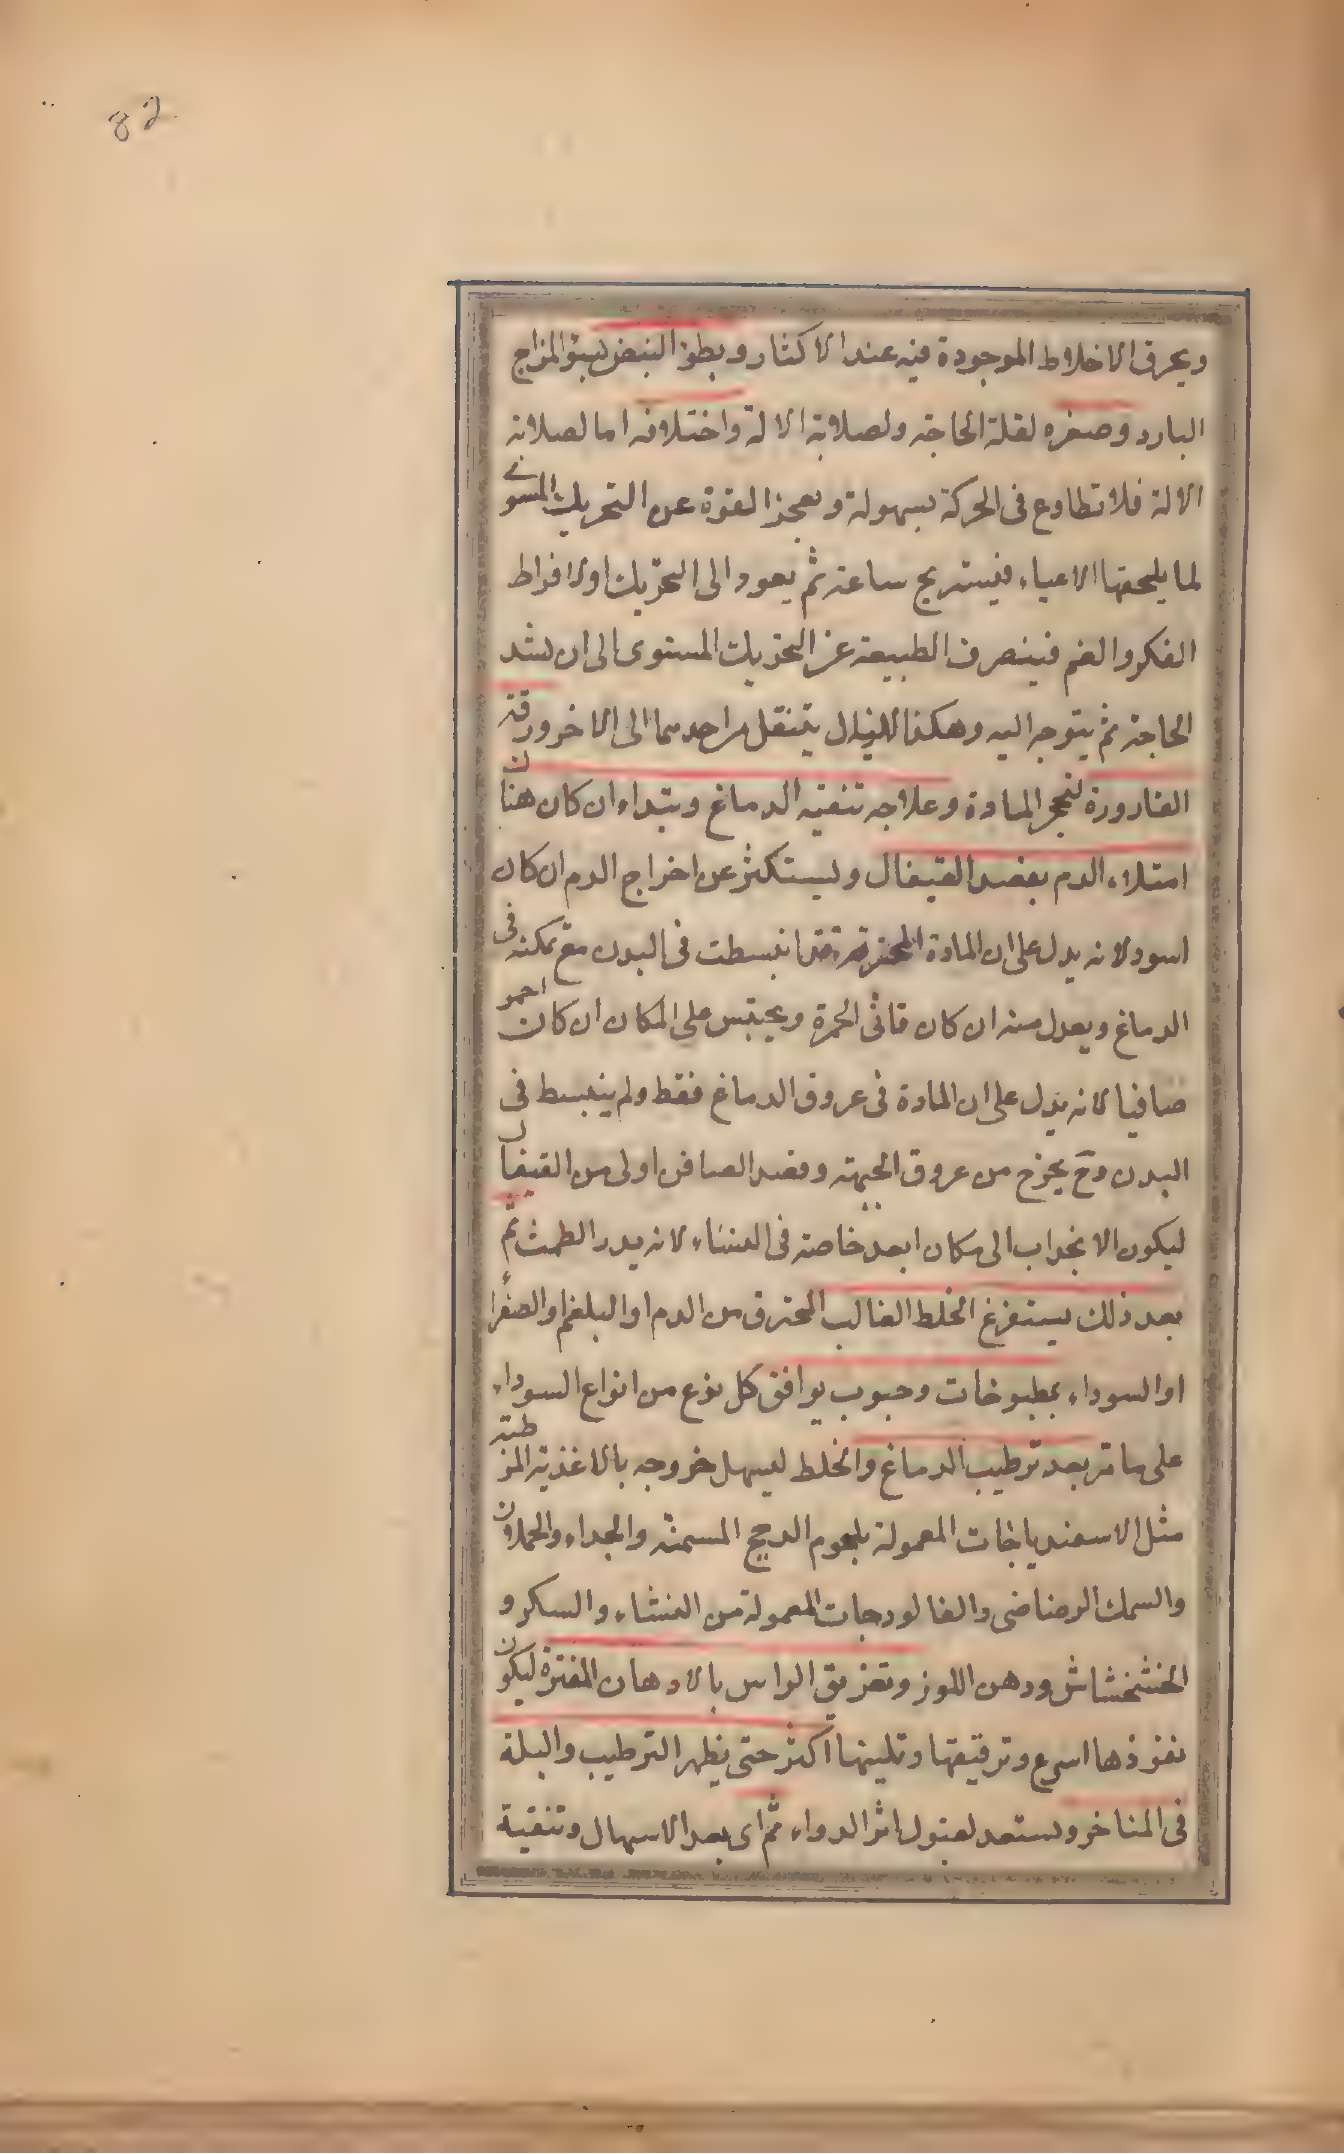 82
ويحرق الاخلاط الموجودة فيه عند الاكثار وبطؤ النبض لسؤ المزاج
البارد وصغره لقلة الحاجة ولصلابة الالة واختلافه اما لصلابة
الالة فلا تطاوع فى الحركة بسهولة وبعجز القوة عن التحريك المسوى
لما يلحقها الاعياء فيستريح ساعة ثم يعود الى التحريك اولافراط
الفكر والغم فينصرف الطبيعة عن التحريك المستوى الى ان يشد
الحاجة ثم يتوجه اليه وهكذا لايزال يتنقل من احدهما الى الاخر ورقة
القارورة لتحجر المادة وعلاجه تنقية الدماغ ويبتداء ان كان هنا
امتلاء الدم بفصد القيفال وليستكثر عن اخراج الدم ان كان
اسود لانه يدل على ان المادة المحترقة قد انبسطت فى البدن مع تمكنه فى
الدماغ ويعدل منه ان كان قانى الحمرة ويحتبس على المكان ان كان احمر
صافيا لانه يدل على ان المادة فى عروق الدماغ فقط ولم ينبسط فى
البدن وح يخرج من عروق الجبهة وفصد الصافن اولى من القيفال
ليكون الانجذاب الى مكان ابعد خاصة فى النساء لانه يدر الطمث ثم
بعد ذلك يستفرغ الخلط الغالب المحترق من الدم او البلغم او الصفراء
او السوداء بمطبوخات وحبوب يوافق كل نوع من انواع السوداء
على ما مر بعد ترطيب الدماغ والخلط ليسهل خروجه بالاغذية المرطبة
مثل الاسفندياخات المعمولة بلحوم الدجج المسمنة والجداء والحملان
والسمك الرضاضى والفالودجات المعمولة من النشاء والسكر و
الخشخشاش ودهن اللوز وتعريق الراس بالادهان المفترة ليكون
نفوذها اسرع وترقيقها وتليينها اكثر حتى يظهر الترطيب والبلة
فى المناخر ويستعد لقبول اثر الدواء ثم اى بعد الاسهال وتنقية